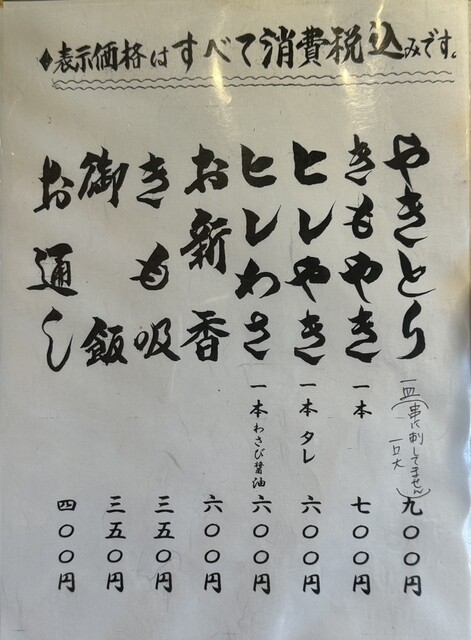 ◆表示価格はすべて消費税込みです。
やきとり 一皿(串に刺してません) 一口大 九〇〇円
きもやき 一本 七〇〇円
ヒレやき 一本 タレ 六〇〇円
ヒレわさ 一本 わさび醤油 六〇〇円
お新香 六〇〇円
きも吸 三五〇円
御飯 三五〇円
お通し 四〇〇円